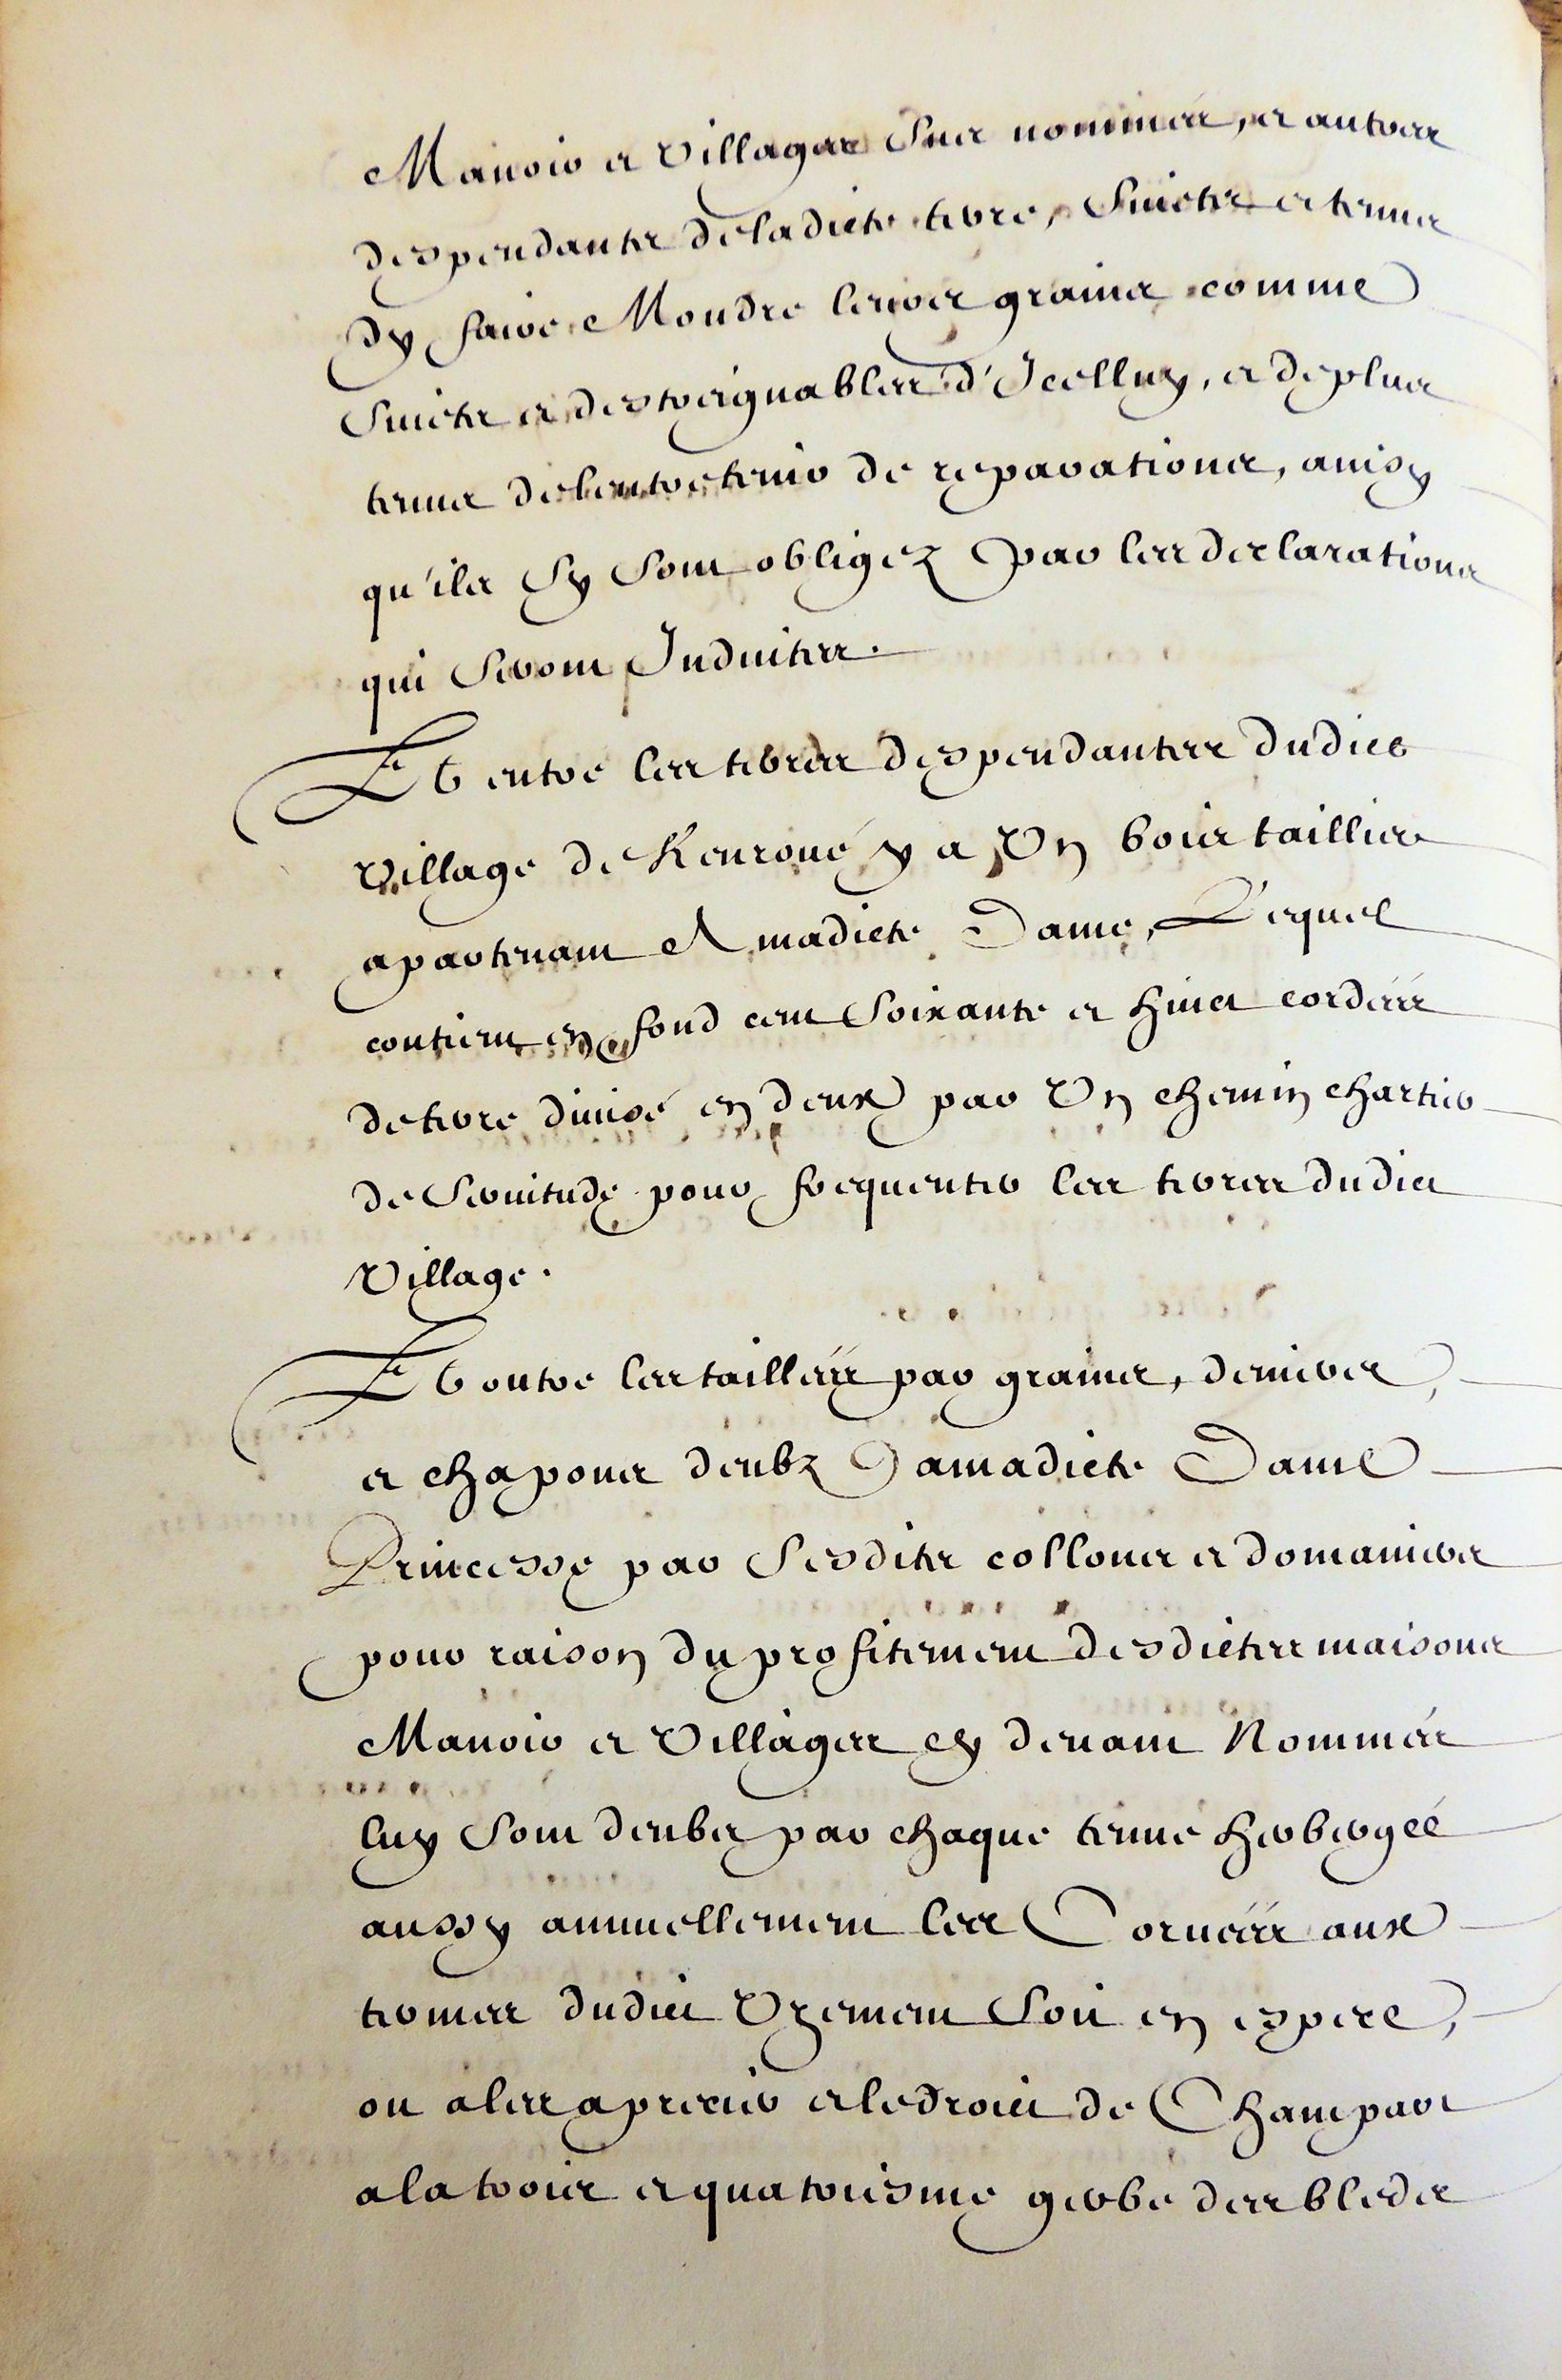 Manoir et Villages Sus nommés, et autres
despendants de ladicte terre, Suiets et tenus
dy faire Moudre leurs grains comme
Suiets et destraignables d'Icelluy, et de plus
tenus de l'entretenir de reparations, ainsy
qu'ils sy Sont obligez Par les declarations
qui Seront Induites.
Et entre les terres despendantes dudict
Village de Kenroué y a Vn bois taillier
apartenant A madicte Dame, Lequel
contient en fond cent Soixante et huict cordées
de terre diuisé en deux par Vn chemin chartier
de Seruitude pour frequenter les terres dudict
Village.
Et outre les taillées par grains, deniers,
et chapons deubz Jamadicte Dame
Princesse par Sesdits collons et domaniers
pour raison du profitement desdictes maisons
Manoir et Villages cy deuant Nommés
luy Sont deubes par chaque tenue herbergée
aussy annuellement les Coruées aux
termes dudict Vzement Soit en espece,
ou a les aprecier et le droict de Champart
a la trois et quatriesme gerbe des bleds